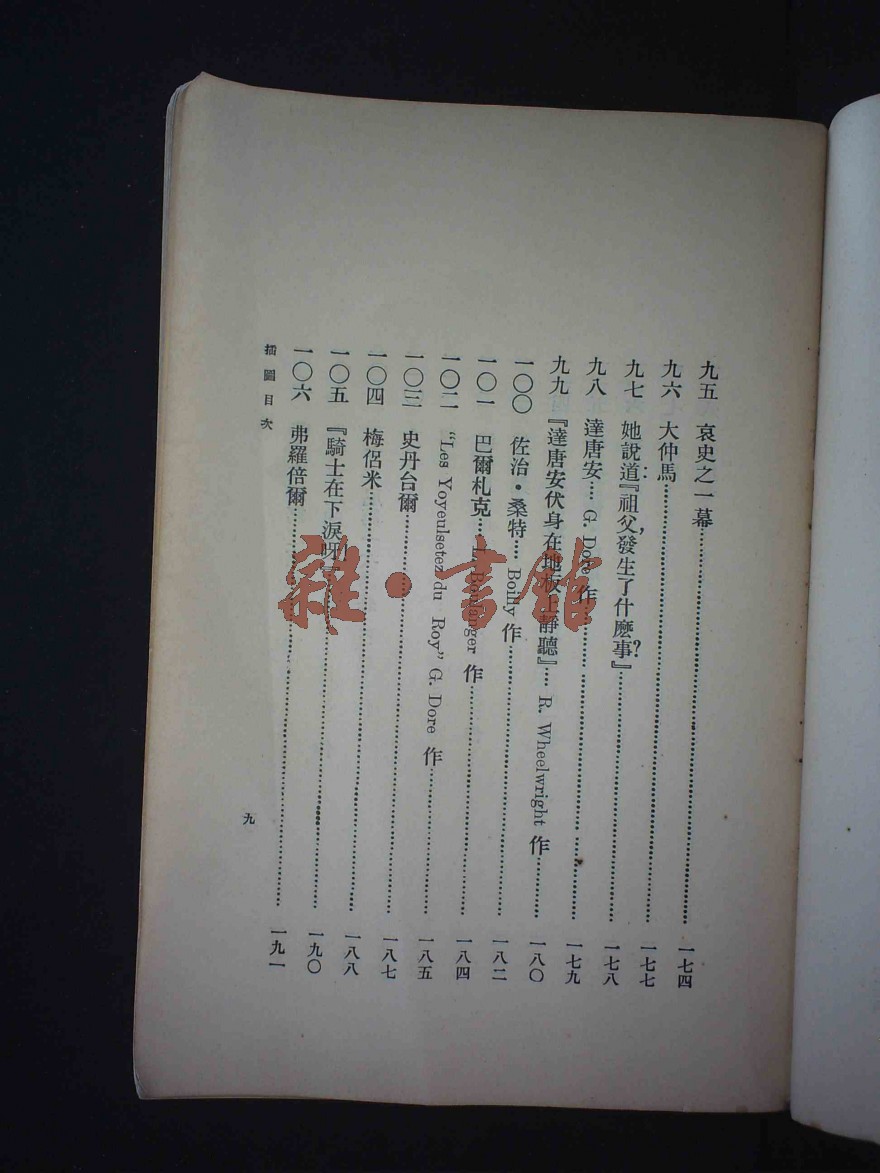 九五 哀史之一幕 一七四
九六 大仲馬 一七七
九七 她說道:『祖父,發生了什麼事?』 一七八
九八 達唐安 G. Dore 作 一七九
九九 『達唐安伏身在地板上靜聽』 R. Wheelwright 作 一八〇
一〇〇 佐治·桑特 Boilly 作 一八二
一〇一 巴爾札克 L. Boulanger 作 一八四
一〇二 "Les Yoyeulsetez du Roy" G. Dore 作 一八五
一〇三 史丹台爾 一八七
一〇四 梅侶米 一八八
一〇五 『騎士在下淚呀!』 一九〇
一〇六 弗羅倍爾 一九一
插圖目次
九
雜·書館